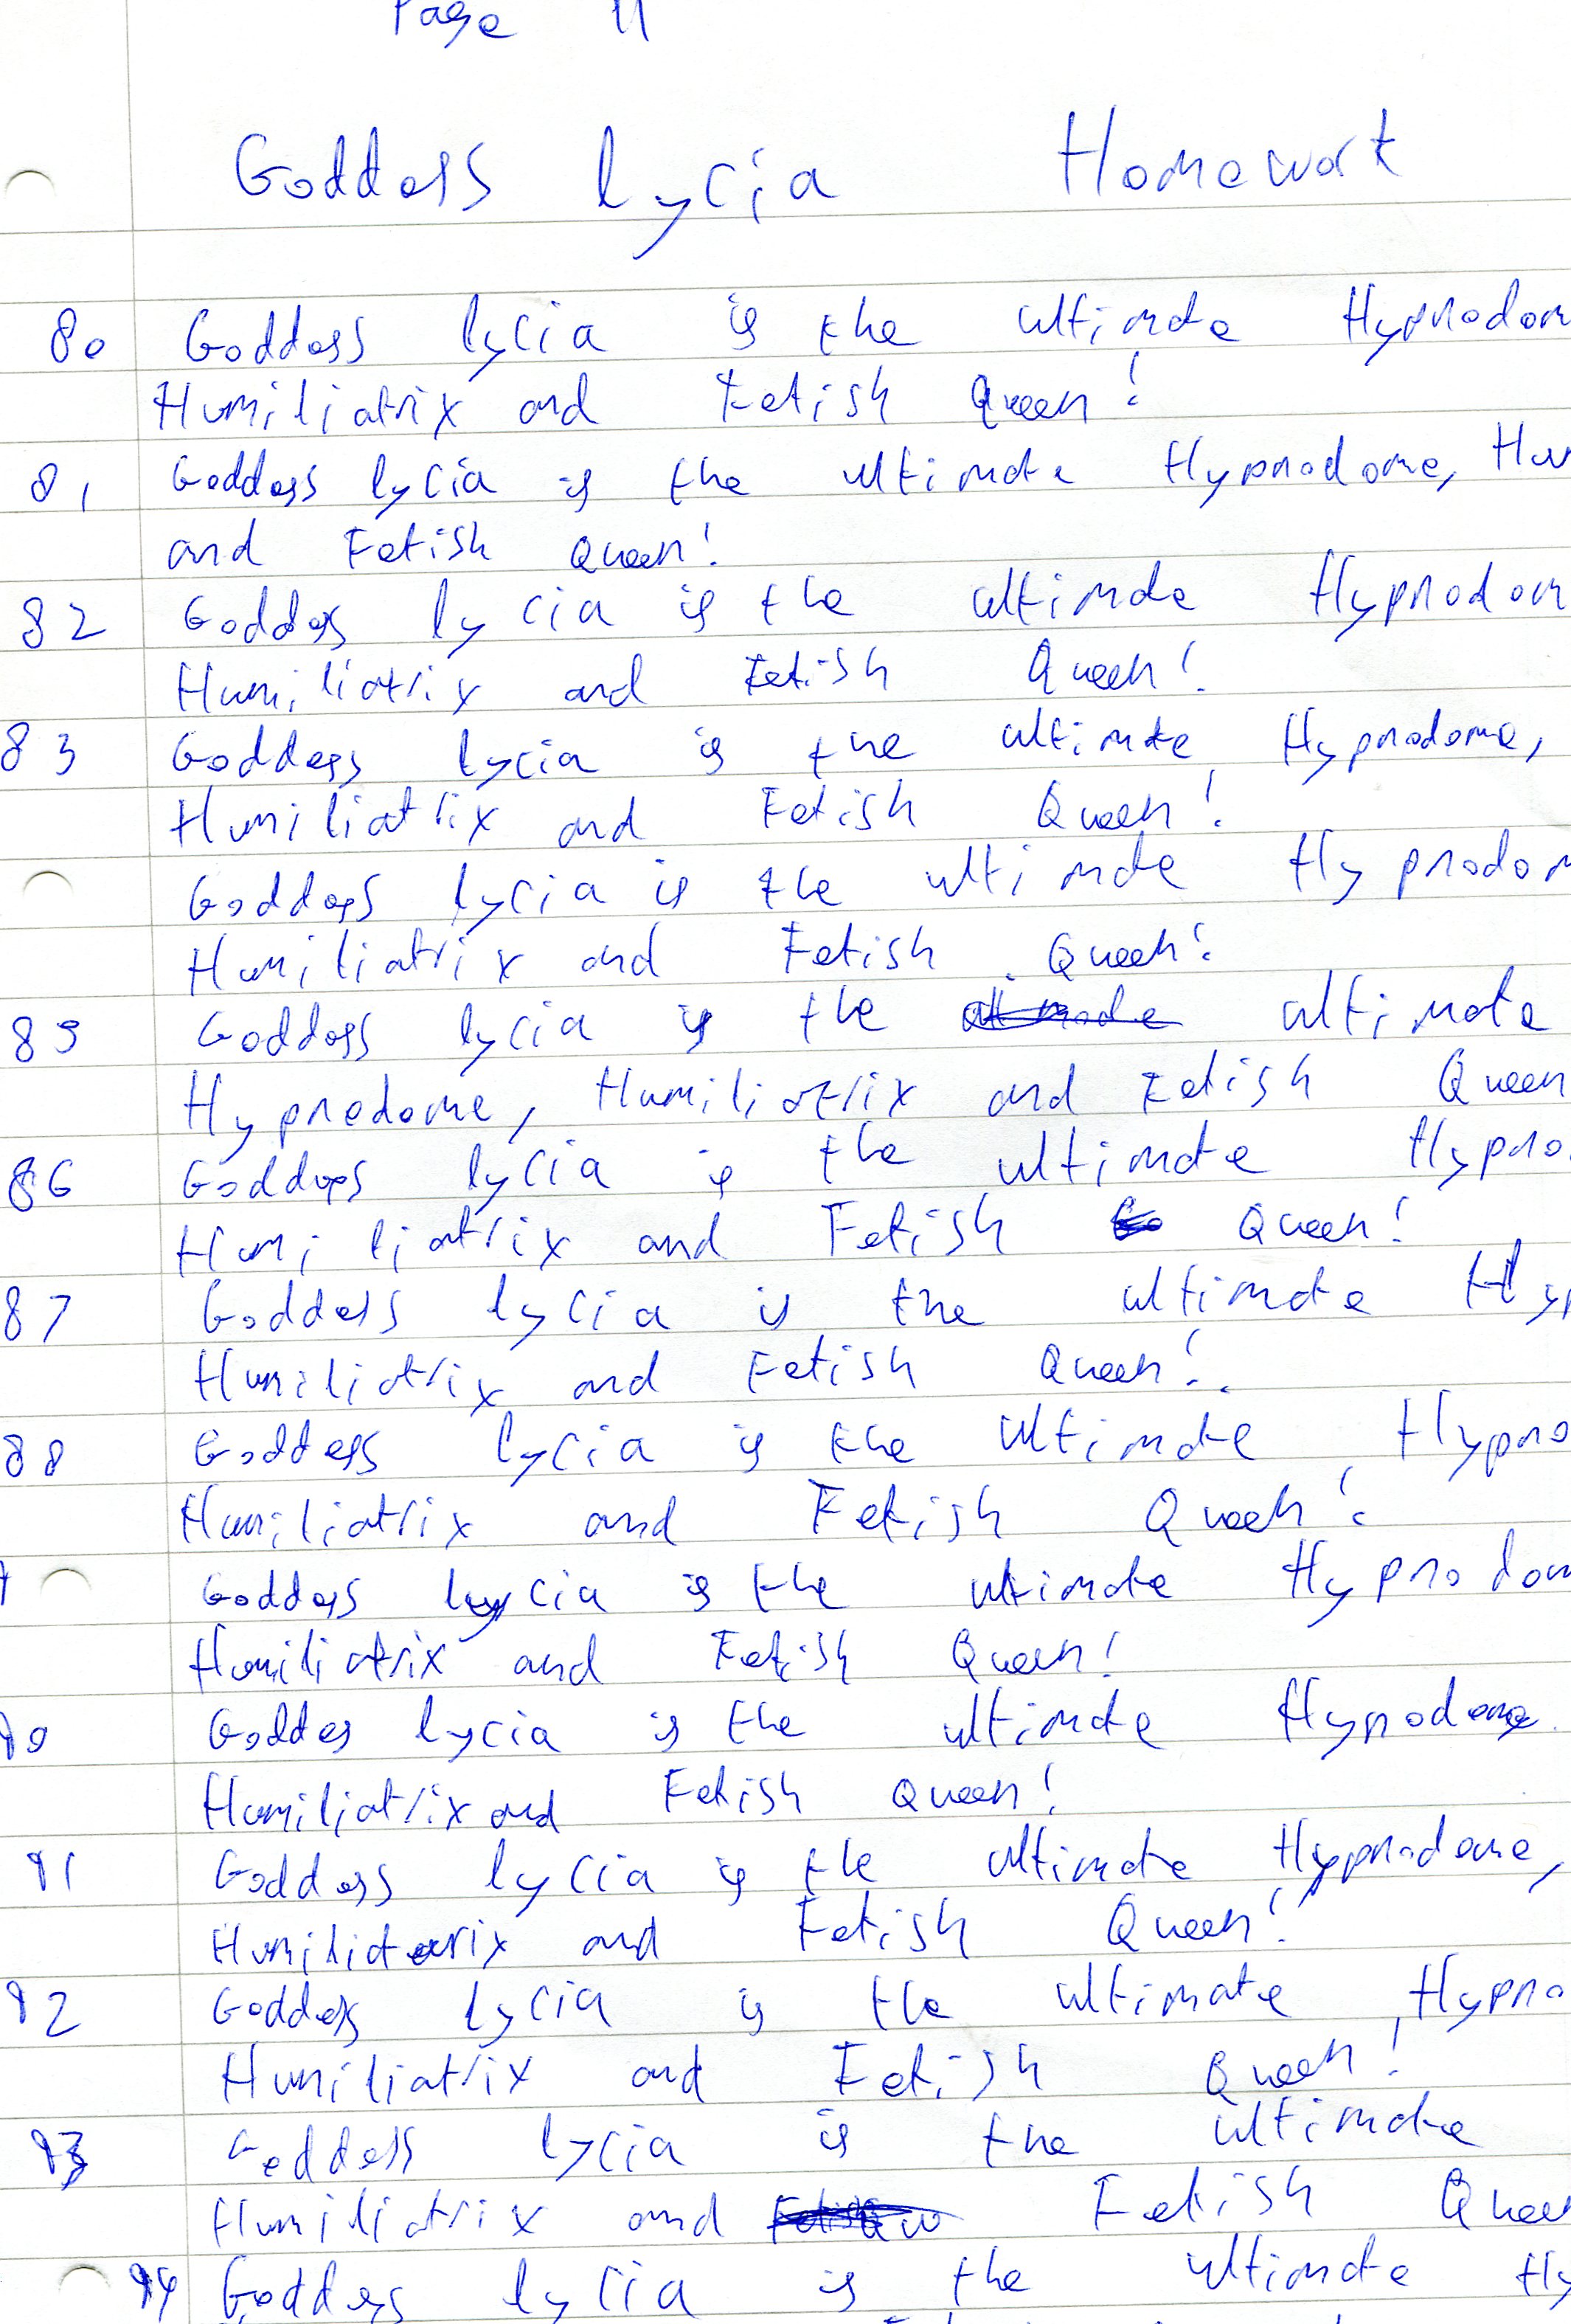 Page 11
Goddess lycia Homework
80 Goddess lycia is the ultimate Hypnodom
Humiliatrix and Fetish Queen!
81 Goddess lycia is the ultimate Hypnodome, Hu
and Fetish Queen!
82 Goddess lycia is the ultimate Hypnodom
Humiliatrix and Fetish Queen!
83 Goddess lycia is the ultimate Hypnodome,
Humiliatrix and Fetish Queen!
Goddess lycia is the ultimate Hypnodom
Humiliatrix and Fetish Queen!
85 Goddess lycia is the ultimate
Hypnodome, Humiliatrix and Fetish Queen
86 Goddess lycia is the ultimate Hypno
Humiliatrix and Fetish Queen!
87 Goddess lycia is the ultimate Hyp
Humiliatrix and Fetish Queen!
88 Goddess lycia is the ultimate Hypno
Humiliatrix and Fetish Queen!
Goddess lycia is the ultimate Hypnodom
Humiliatrix and Fetish Queen!
90 Goddes lycia is the ultimate Hypnodome
Humiliatrix and Fetish Queen!
91 Goddess lycia is the ultimate Hypnodome,
Humiliatrix and Fetish Queen!
92 Goddess lycia is the ultimate Hypno
Humiliatrix and Fetish Queen!
93 Goddess lycia is the ultimate
Humiliatrix and Fetish Queen
94 Goddess lycia is the ultimate Hy